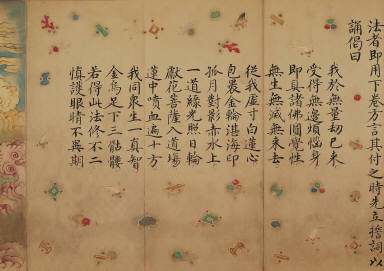 法者即用下卷方言其付之時先立誓詞以
誦偈曰
我於無量劫已來
受得無邊煩惱身
即具諸佛圓覺性
無生無滅無來去
從我虛寸白蓮心
包裹金輪湛海印
孤月對影赤水上
一道綠光照日輪
獻花菩薩入道場
蓮中噴血遍十方
我同衆生一真智
金烏足下三骷髏
若得此法修不二
慎護眼睛不異期